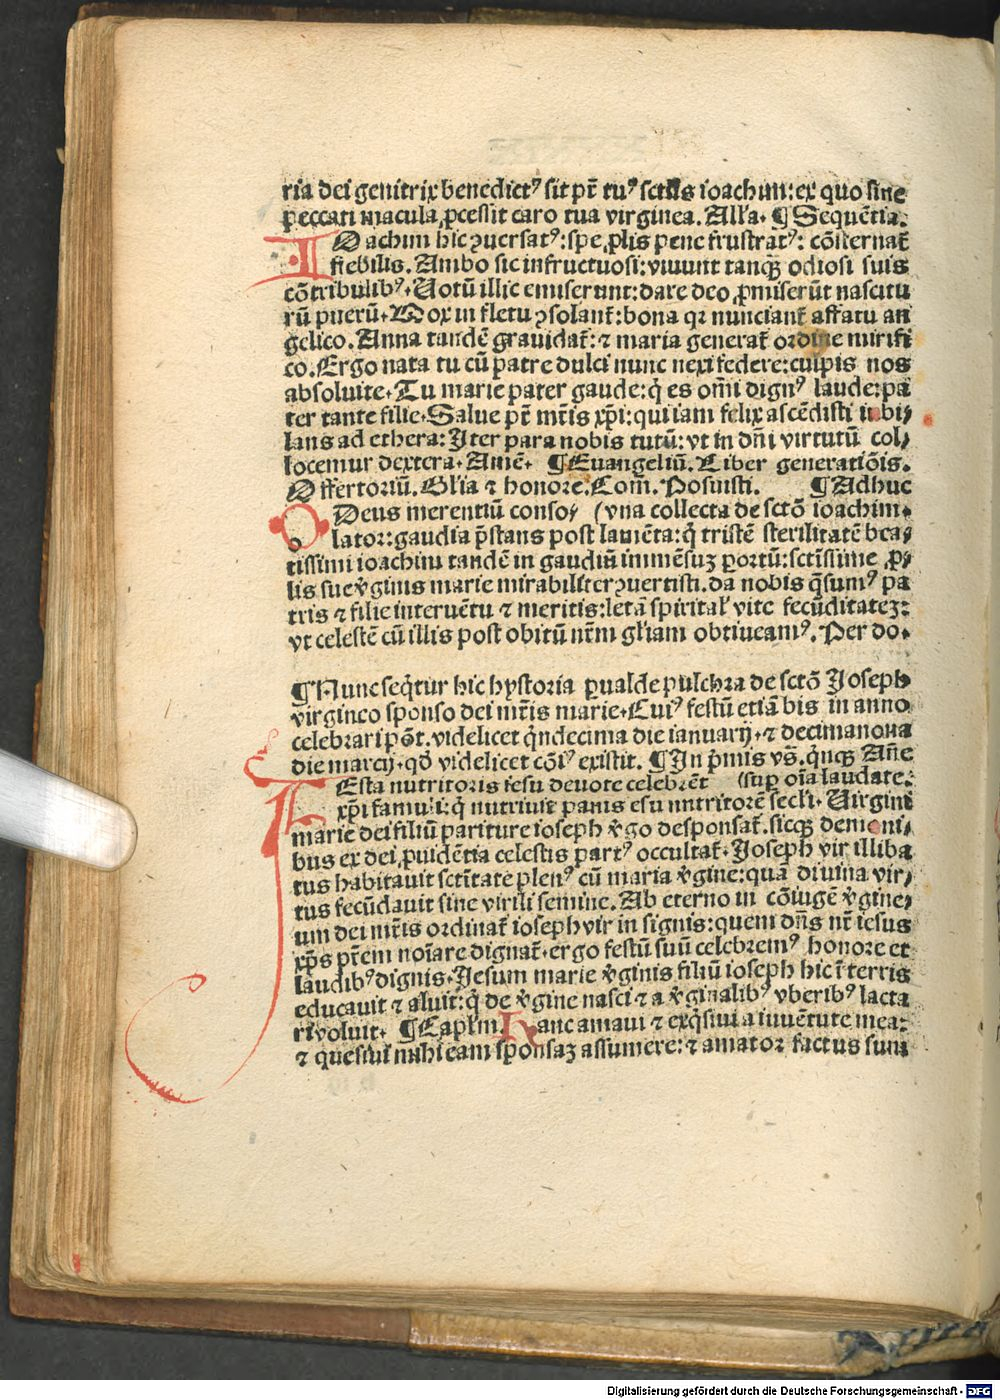 ria dei genitrix benedictꝰ sit pr̄ tuꝰ sctūs ioachim: ex quo sine
peccati macula ꝓcessit caro tua virginea. Alla. ¶ Sequētia.
IOachim hic ꝯuersatꝰ: spe ꝓlis pene frustratꝰ: cōsternat̄
flebilis. Ambo sic infructuosi: viuunt tanqꝫ odiosi suis
cōtribulibꝰ. Uotū illic emiserunt: dare deo ꝓmiserūt nascitu
rū puerū. Mox in fletu ꝯsolant̄: bona qꝛ nunciant̄ affatu an
gelico. Anna tandē grauidat̄: ⁊ maria generat̄ ordine mirifi
co. Ergo nata tu cū patre dulci nunc nexi federe: culpis nos
absoluite. Tu marie pater gaude: q̇ es om̄i dignꝰ laude: pa
ter tante filie. Salue pr̄ mr̄is xp̄i: qui iam felix ascēdisti iubi⸗
lans ad ethera: Iter para nobis tutū: vt in dn̄i virtutū col⸗
locemur dextera. Amē. ¶ Euangeliū. Liber generatiōis.
Offertoriū. Gl'ia ⁊ honore. Com. Posuisti. ¶ Adhuc
ODeus merentiū conso⸗ (vna collecta de sctō ioachim.
lator: gaudia p̄stans post lamēta: q̇ tristē sterilitatē bea⸗
tissimi ioachim tandē in gaudiū immēsuꝫ portū: sctīssime ꝓ⸗
lis sue v̇ginis marie mirabiliter ꝯuertisti. da nobis q̄sumꝰ pa
tris ⁊ filie interuētu ⁊ meritis: letā spirital' vite fecūditateꝫ:
vt celestē cū illis post obitū nr̄m gl'iam obtineamꝰ. Per do.
¶ Nunc seq̇tur hic hystoria ꝑualde pulchra de sctō Ioseph
virgineo sponso dei mr̄is marie. Cuiꝰ festū etiā bis in anno
celebrari pōt. videlicet q̇ndecima die ianuarij. ⁊ decimanona
die marcij. qd̄ videlicet cōiꝰ existit. ¶ In p̄mis vs̄. q̇nqꝫ Añe
FEsta nutritoris iesu deuote celebrēt (sup oīa laudate.
xp̄i famuli: q̇ nutriuit panis esu nutritorē secli. Uirgini
marie dei filiū pariture ioseph v̇go desponsat̄. sicqꝫ demoni⸗
bus ex dei ꝓuidētia celestis partꝰ occultat̄. Ioseph vir illiba
tus habitauit sctītate plenꝰ cū maria v̇gine: quā diuina vir⸗
tus fecūdauit sine virili semine. Ab eterno in cōiugē v̇gine⸗
um dei mr̄is ordinat̄ ioseph vir in signis: quem dn̄s nr̄ iesus
xp̄s pr̄em noīare dignat̄. ergo festū suū celebremꝰ honore et
laudibꝰ dignis. Iesum marie v̇ginis filiū ioseph hic ī terris
educauit ⁊ aluit: q̇ de v̇gine nasci ⁊ a v̇ginalibꝰ vberibꝰ lacta
ri voluit. ¶ Caplm. Hanc amaui ⁊ exq̇siui a iuuētute mea:
⁊ quesiui mihi eam sponsaꝫ assumere: ⁊ amator factus sum
Digitalisierung gefördert durch die Deutsche Forschungsgemeinschaft - DFG